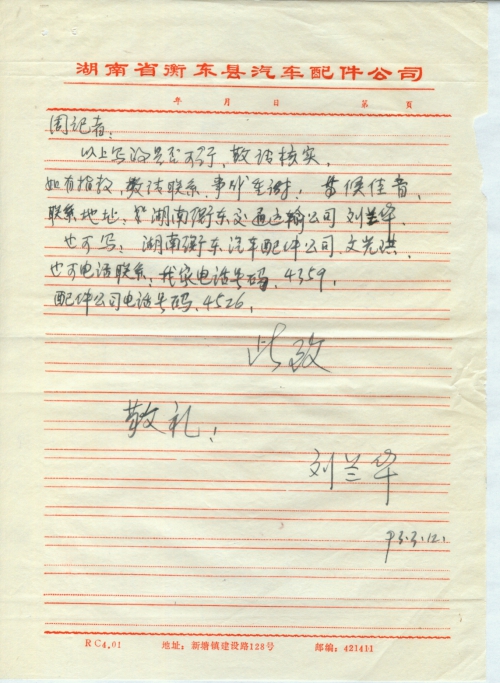 湖南省衡东县汽车配件公司
年 月 日 第 页
周记者:
以上写的是否可行,敬请核实,
如有指教,敬请联系,事成重谢! 候佳音,
联系地址:湖南衡东交通运输公司 刘兰华,
也可写:湖南衡东汽车配件公司,文先琪,
也可电话联系:我家电话号码,4359,
配件公司电话号码,4526,
此致
敬礼!
刘兰华
93.3.12.
RC4.01 地址:新塘镇建设路128号 邮编:421411